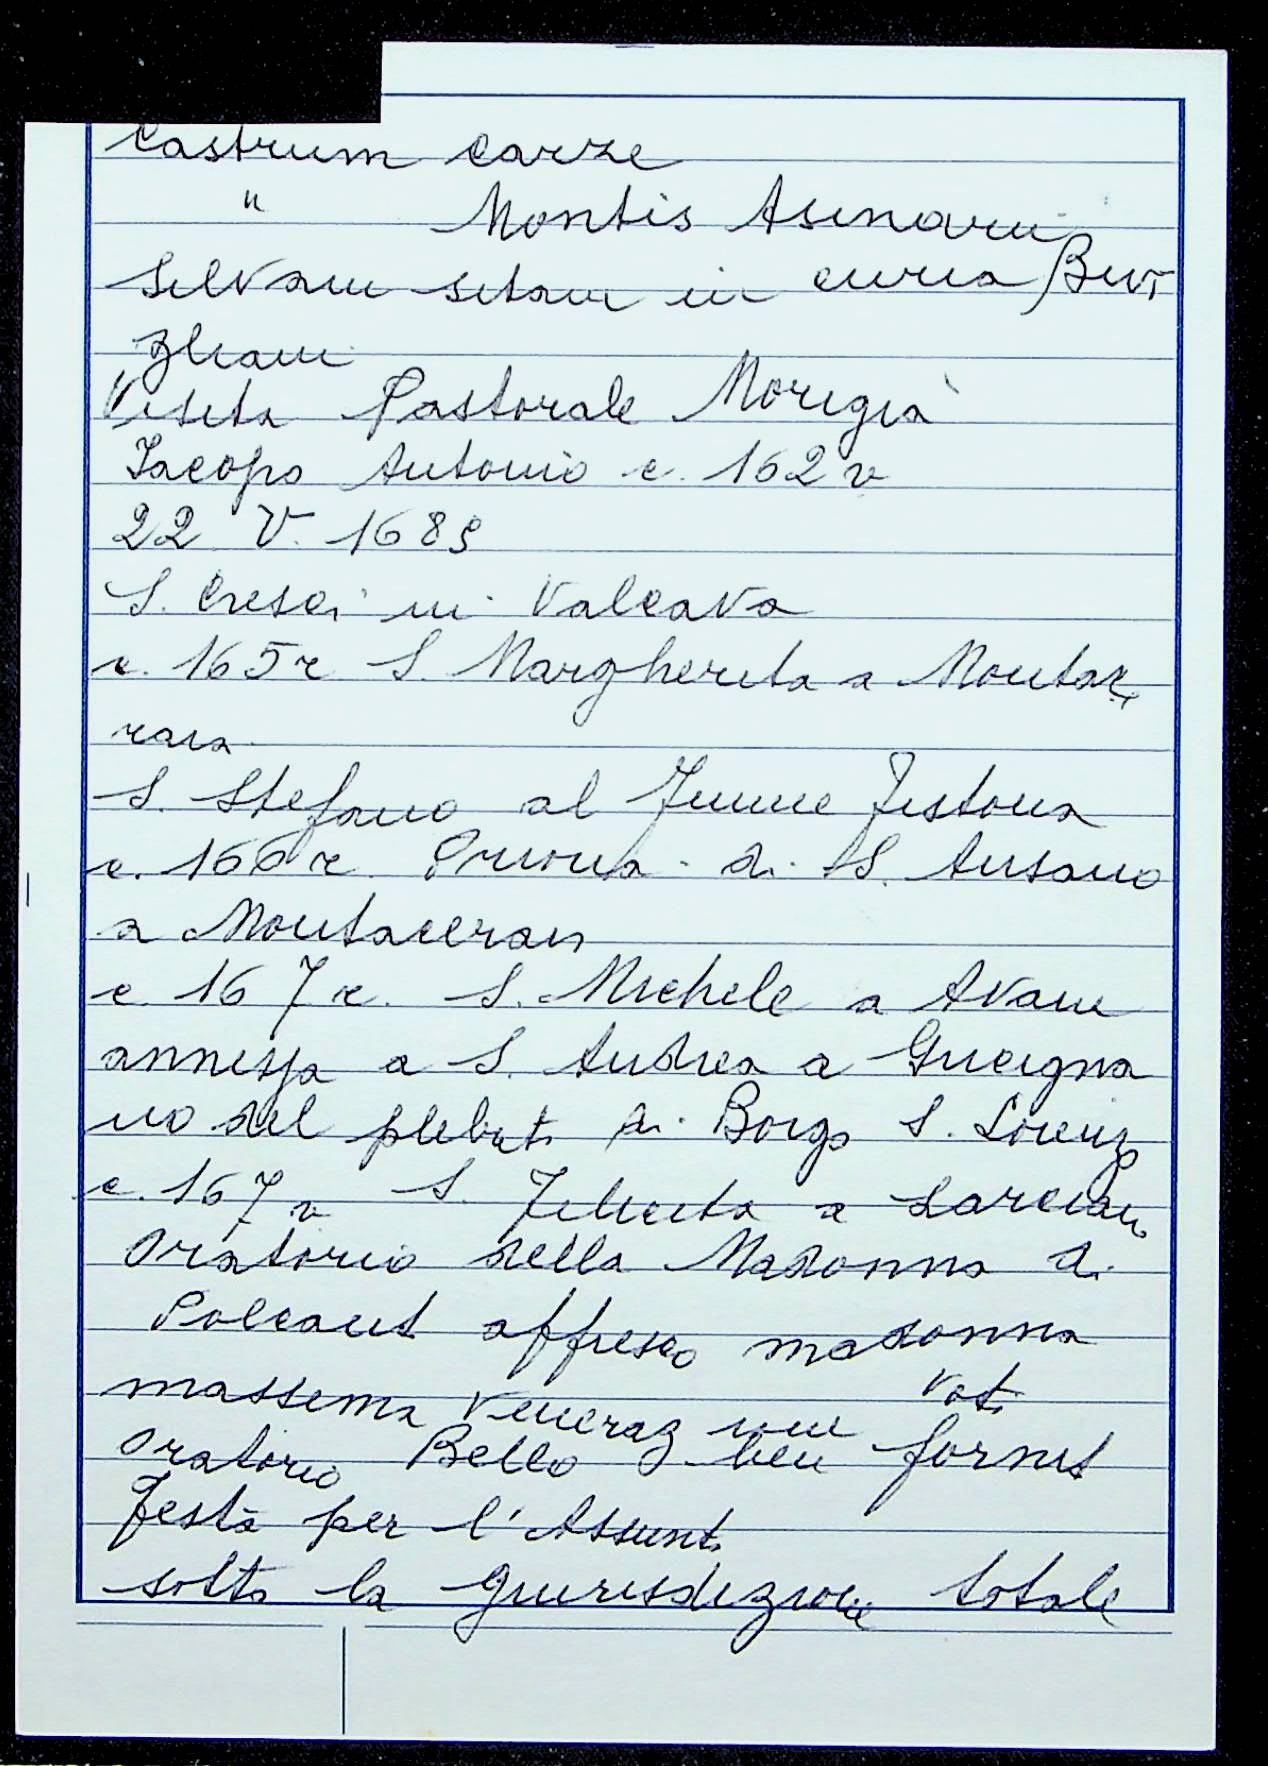 Castrum Carze
" Montis Asinarii
Silvam sitam in curia Bur
zliani
Visita Pastorale Morigia
Jacopo Antonio c. 162 v
22 V. 1689
S. Cresci in Valcava
c. 165 r S. Margherita a Montac
raia
S. Stefano al fiume Fistona
c. 166 r. Prioria di S. Ansano
a Montaceraio
c. 167 r. S. Michele a Avani
annessa a S. Andrea a Gricigna
no del plebat. di Borgo S. Lorenz
c. 167 v S. Felicita a Larciano
Oratorio della Madonna di
Polcant affresco madonna
massima veneraz
voti
Oratorio Bello ben fornit
festa per l'Assunt.
sotto la giurisdizione totale